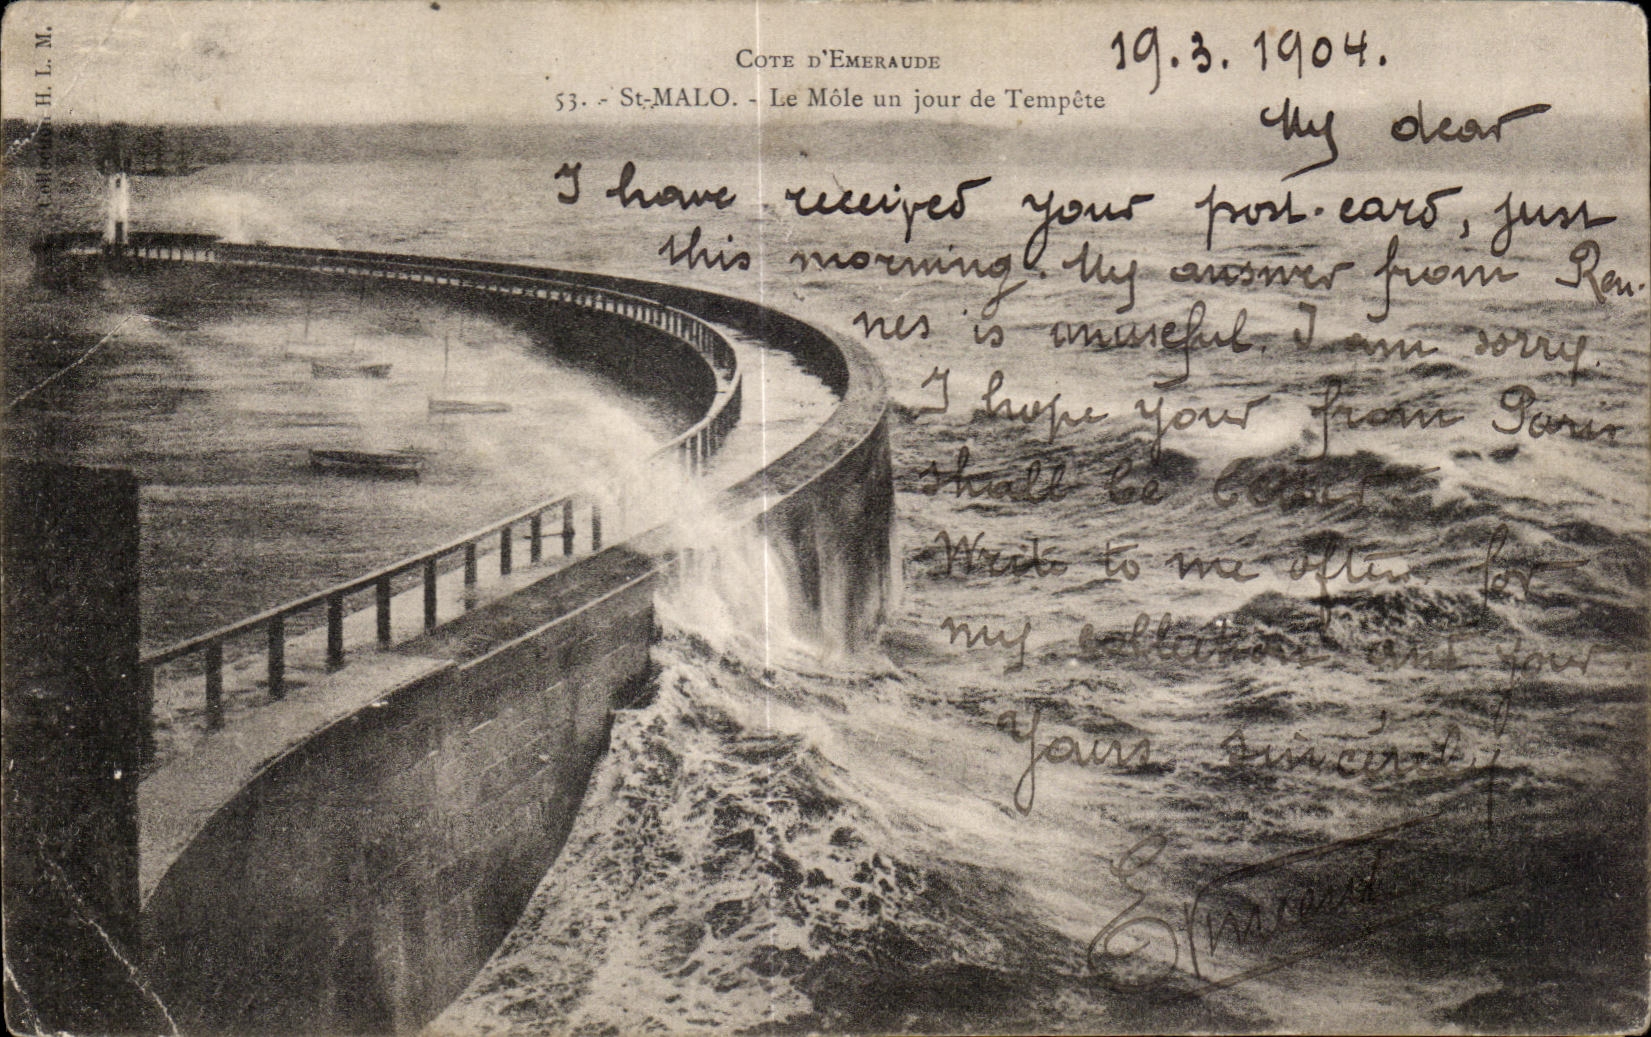 COTE D'EMERAUDE
53. - St-MALO. - Le Môle un jour de Tempête
Collection H. L. M.
19.3.1904.
My dear
I have received your post-card, just
this morning. My answer from Ren-
nes is unuseful. I am sorry.
I hope your from Paris
shall be better
Write to me often for
my collection and your
Yours sincérely